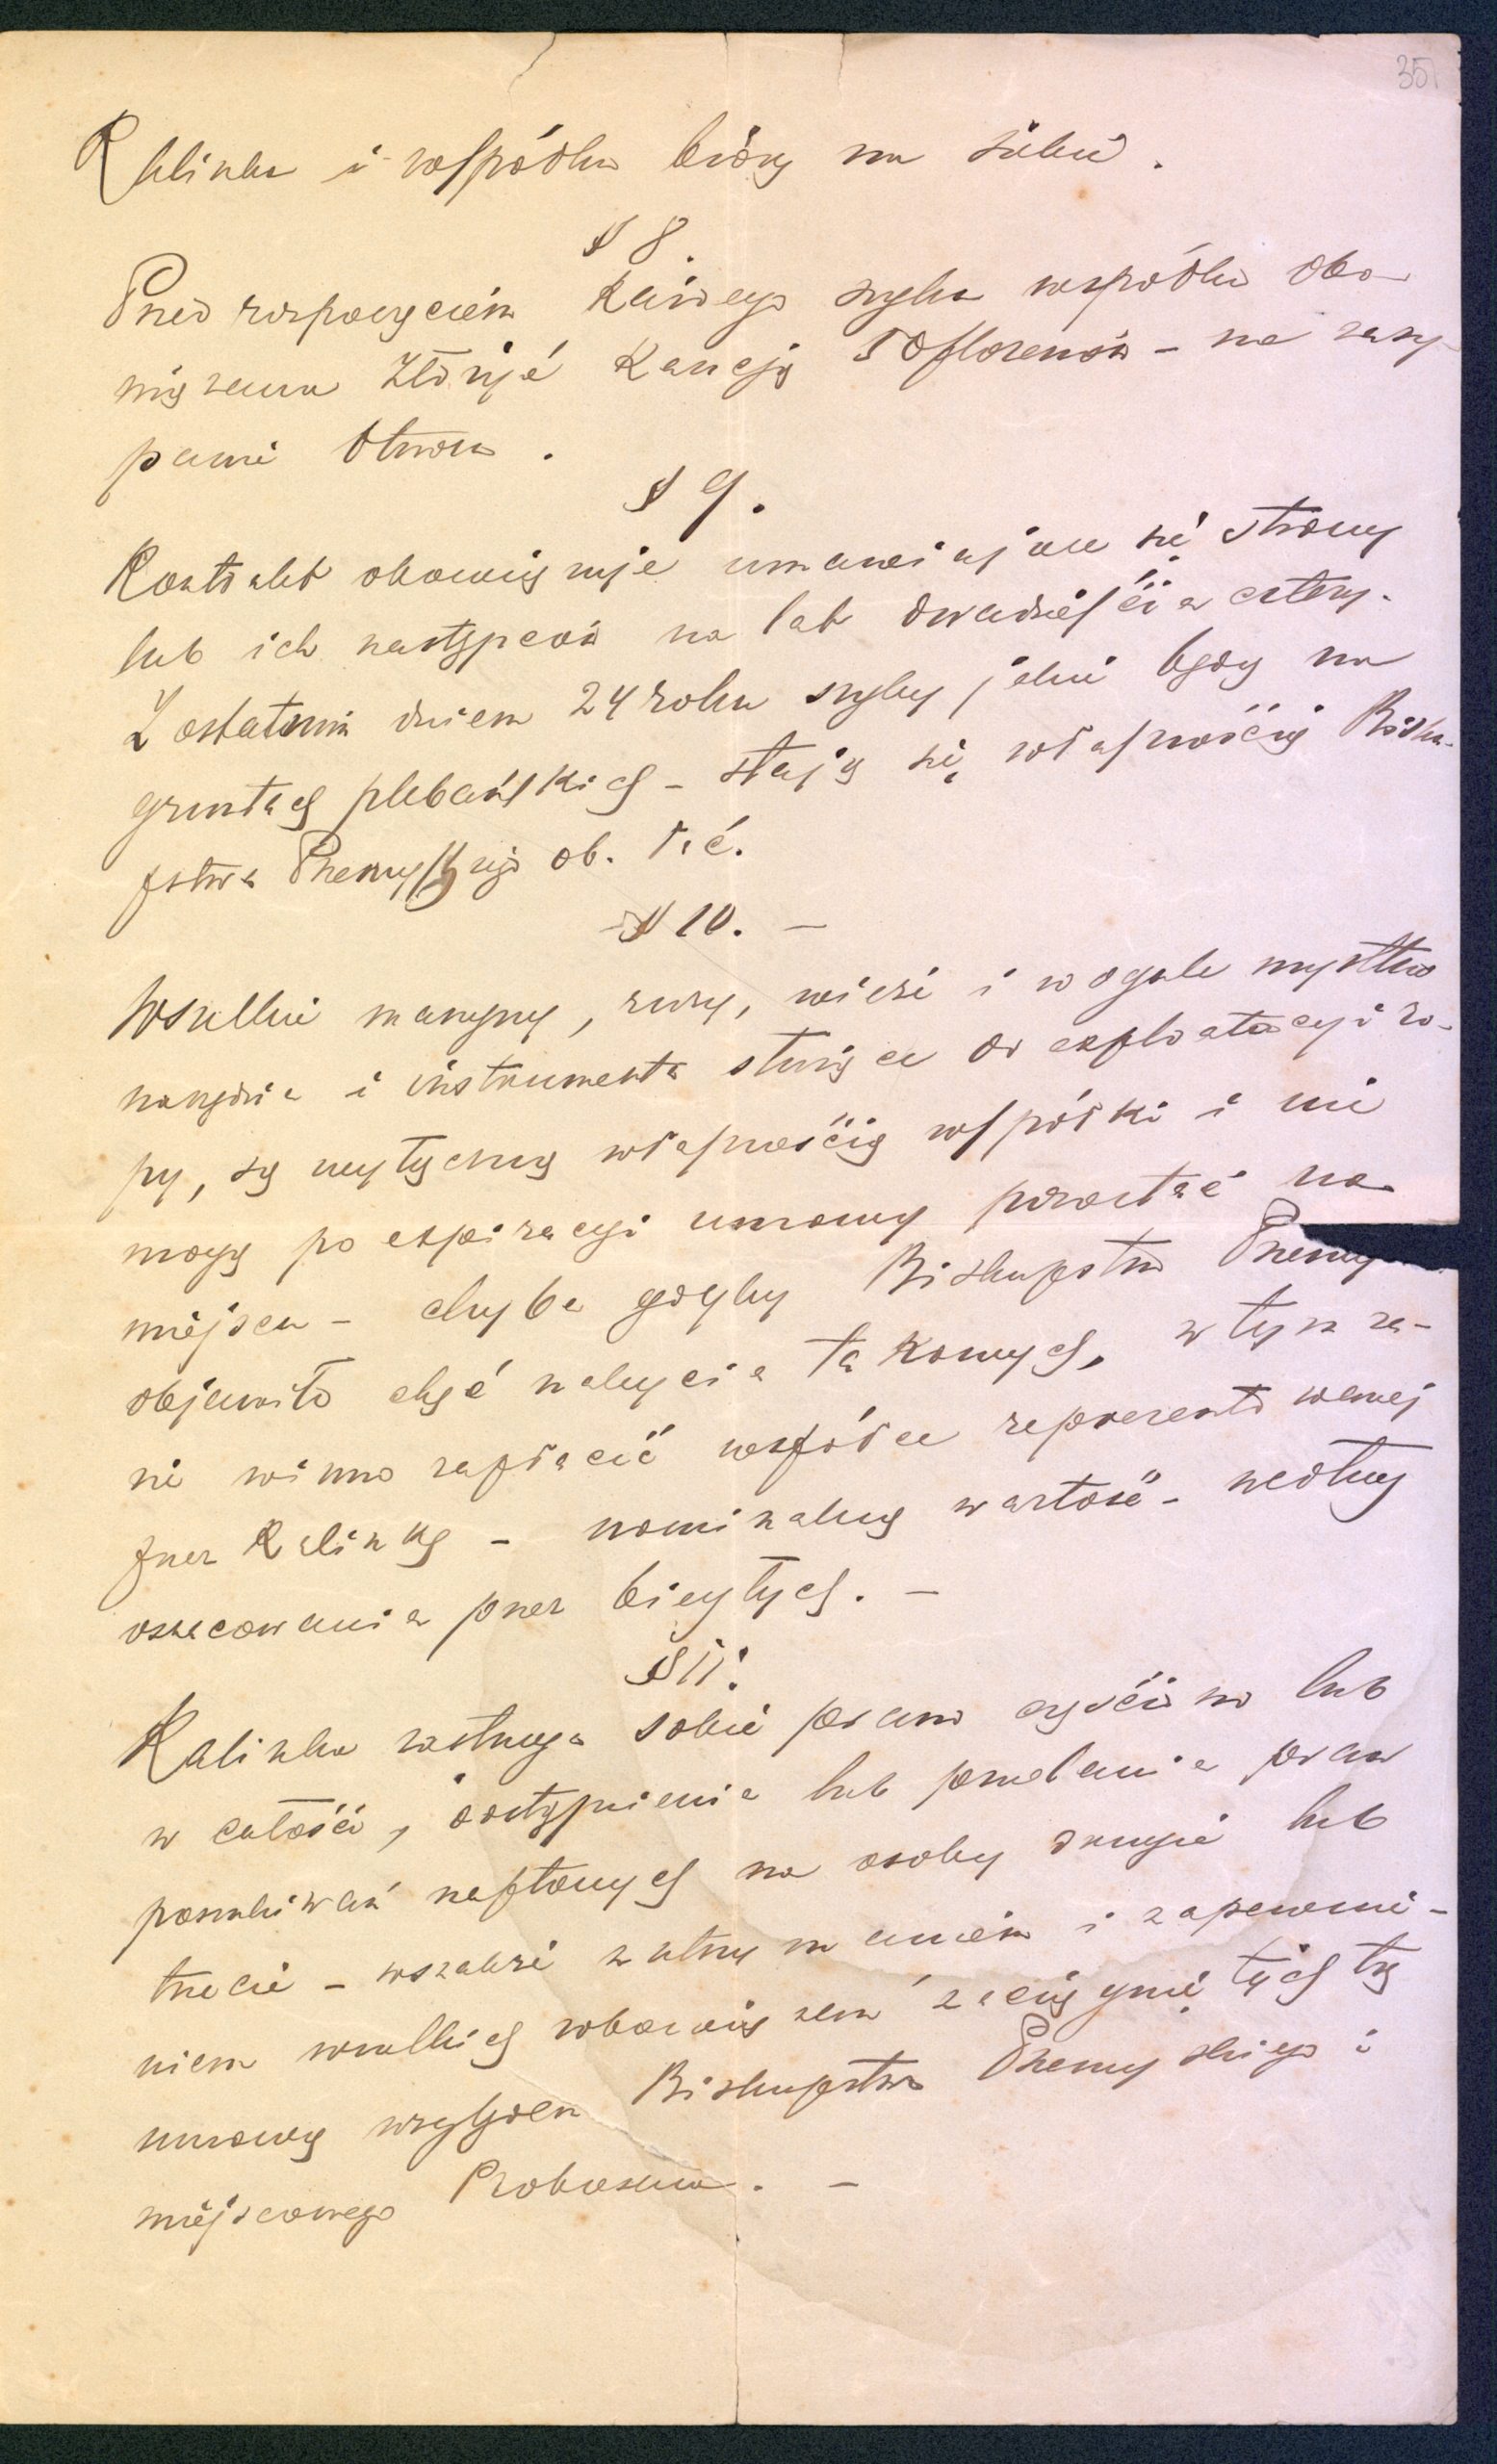 35
Kalinka i wspólka biorą na siebie.
§ 8.
Przed rozpoczęciem każdego szybu wspólka obo-
wiązana złożyć kaucją 50 florenów – na zasy-
panie otworu.
§ 9.
Kontrakt obowiązuje umawiające się strony
lub ich następców na lat dwadzieścia cztery.
Z ostatnim dniem 24 roku szyby jakie będą na
gruntach plebańskich – stają się własnością Bisku-
pstwa Przemyskiego ob. łać.
– § 10. –
Wszelkie maszyny, rury, wieże i w ogóle wszystkie
narzędzia i instrumenta służące do exploatacyi ro-
py, są wyłączną własnością wspólki i nie
mogą po expiracyi umowy pozostać na
miejscu – chyba gdyby Biskupstwo Przemy
objawiło chęć nabycia takowych, w tym ra-
zie winno zapłacić wspólce reprezentowanej
przez Kalinkę – nominalną wartość – według
oszacowania przez biegłych. –
§ 11.
Kalinka zastrzega sobie prawo częściowo lub
w całości, odstąpienia lub przelania praw
poszukiwań naftowych na osoby drugie lub
trzecie – wszakże z utrzymaniem i zapewnie-
niem wszelkich zobowiązań zaciągniętych tą
umową względem Biskupstwa Przemyskiego i
miejscowego Proboszcza. –